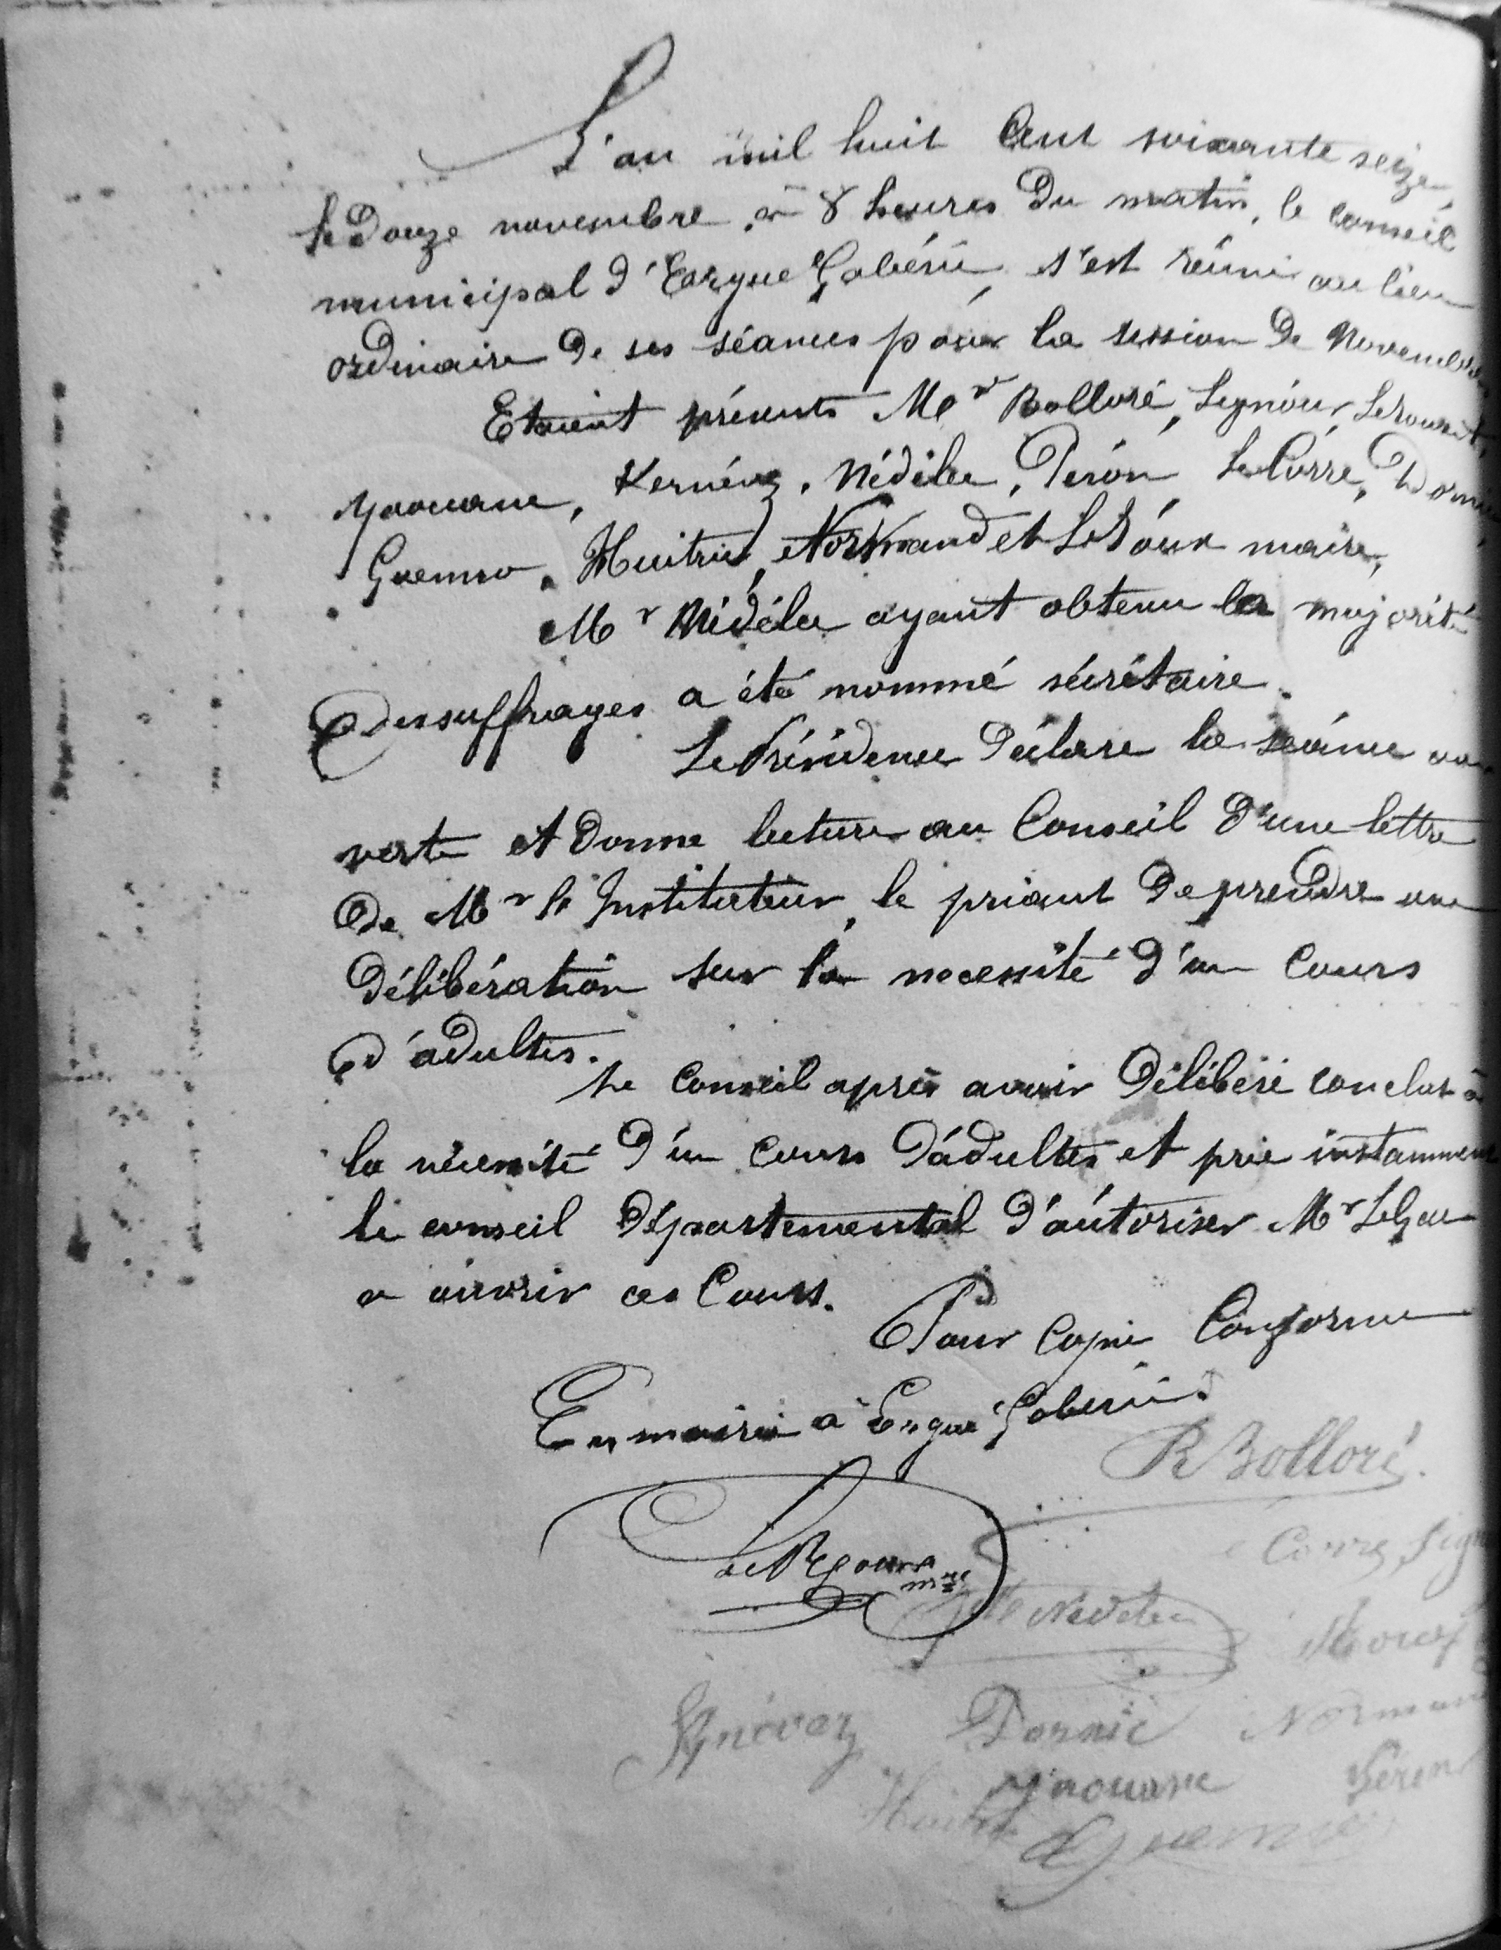 L'an mil huit Cent soixante seize,
le Douze novembre, à 8 heures Du matin, le conseil
municipal d'Ergué Gabéric, s'est réuni au lieu
ordinaire De ses séances pour la session De Novembre
Etaient présents Mr Bolloré, Signour, LeRouxet,
Yaouanc, Kernévez, Nédélec, Péron, Le Corre, Dornic,
Guennec, Huitric, Normand et LeRoux maire,
Mr Nédélec ayant obtenu la majorité
Des suffrages a été nommé sécrétaire.
Le Présidence Déclare la séance ou
verte et Donne lecture au Conseil D'une lettre
De Mr l'Instituteur, le priant De prendre une
Délibération sur la nécessité D'un Cours
D'adultes.
Le Conseil après avoir Délibéré conclut à
la nécessité D'un Cours D'adultes et prie instamment
le conseil Départemental D'autoriser Mr LeGau
a ouvrir ces Cours.
Pour Copie Conforme
En mairie à Ergué Gabéric.
R Bolloré.
LeRoux mre
Corre Sign
Nédélec
Kernévez Dornic Normand
Yaouanc Péron
Huitric Guennec